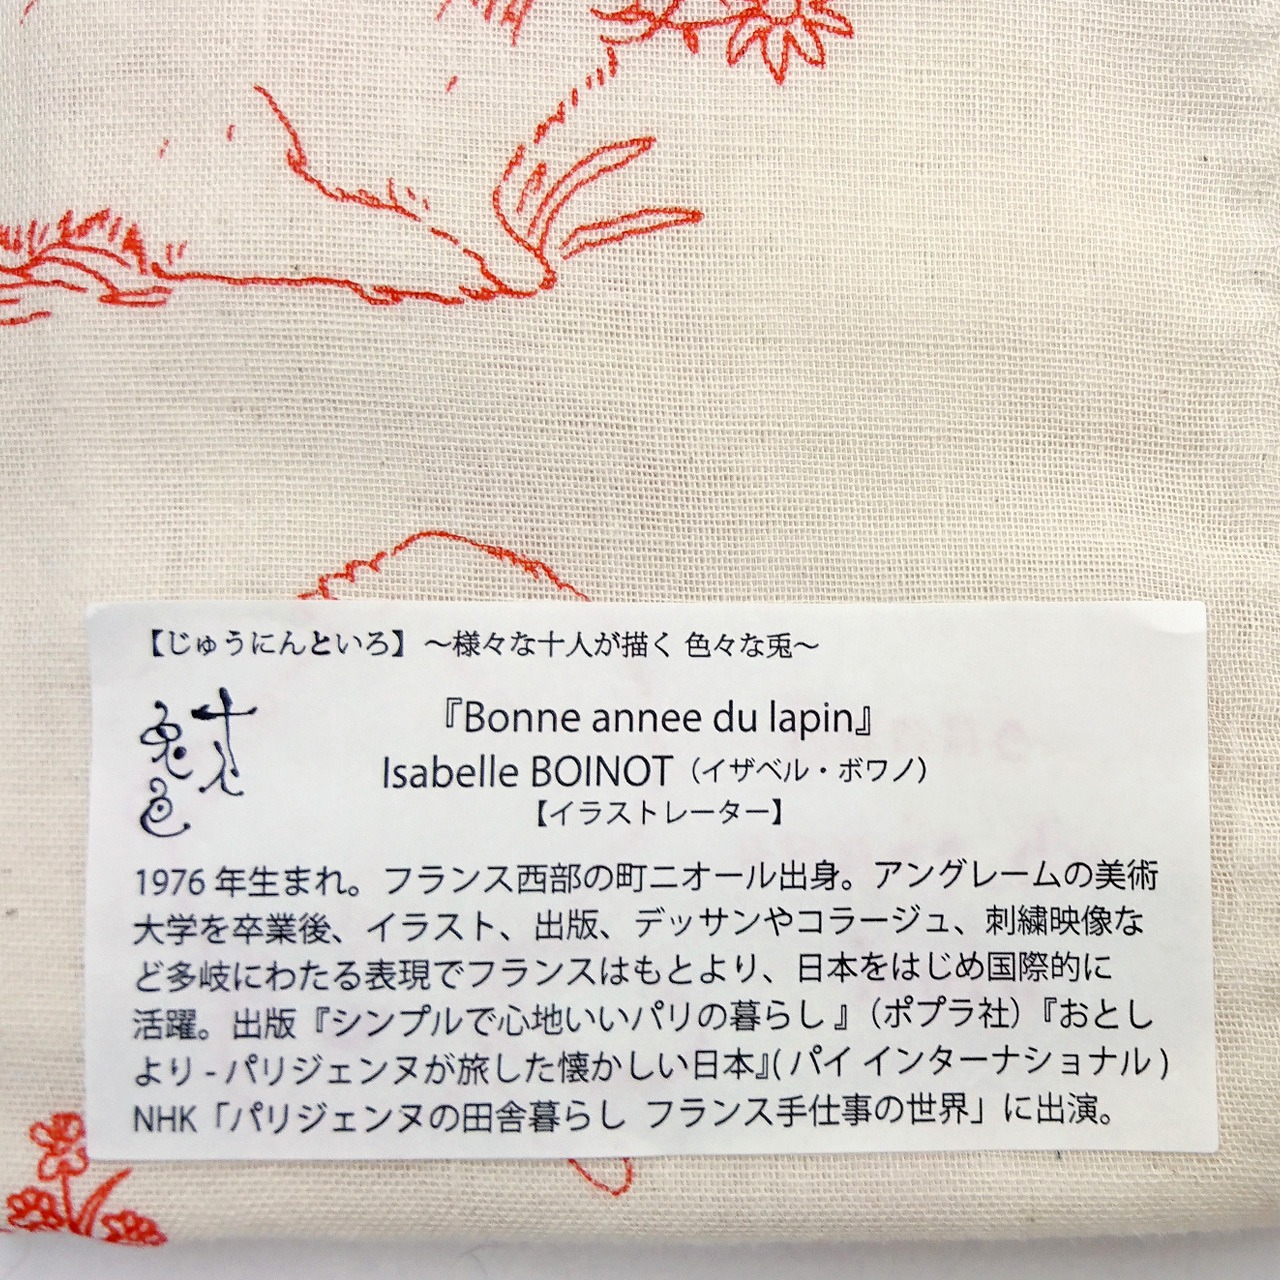 【じゅうにんといろ】～様々な十人が描く 色々な兎～
十人
兎色
『Bonne annee du lapin』
Isabelle BOINOT（イザベル・ボワノ）
【イラストレーター】
1976 年生まれ。フランス西部の町ニオール出身。アングレームの美術
大学を卒業後、イラスト、出版、デッサンやコラージュ、刺繍映像な
ど多岐にわたる表現でフランスはもとより、日本をはじめ国際的に
活躍。出版『シンプルで心地いいパリの暮らし 』（ポプラ社）『おとし
より - パリジェンヌが旅した懐かしい日本』( パイ インターナショナル )
NHK「パリジェンヌの田舎暮らし フランス手仕事の世界」に出演。